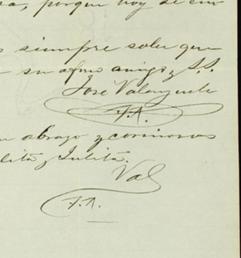 porque hoy
siempre sabe que
su afmo amigo y S.S.
José Valenzuela
F.A.
abrazo y cariñosos
y Julita.
Val
F.A.